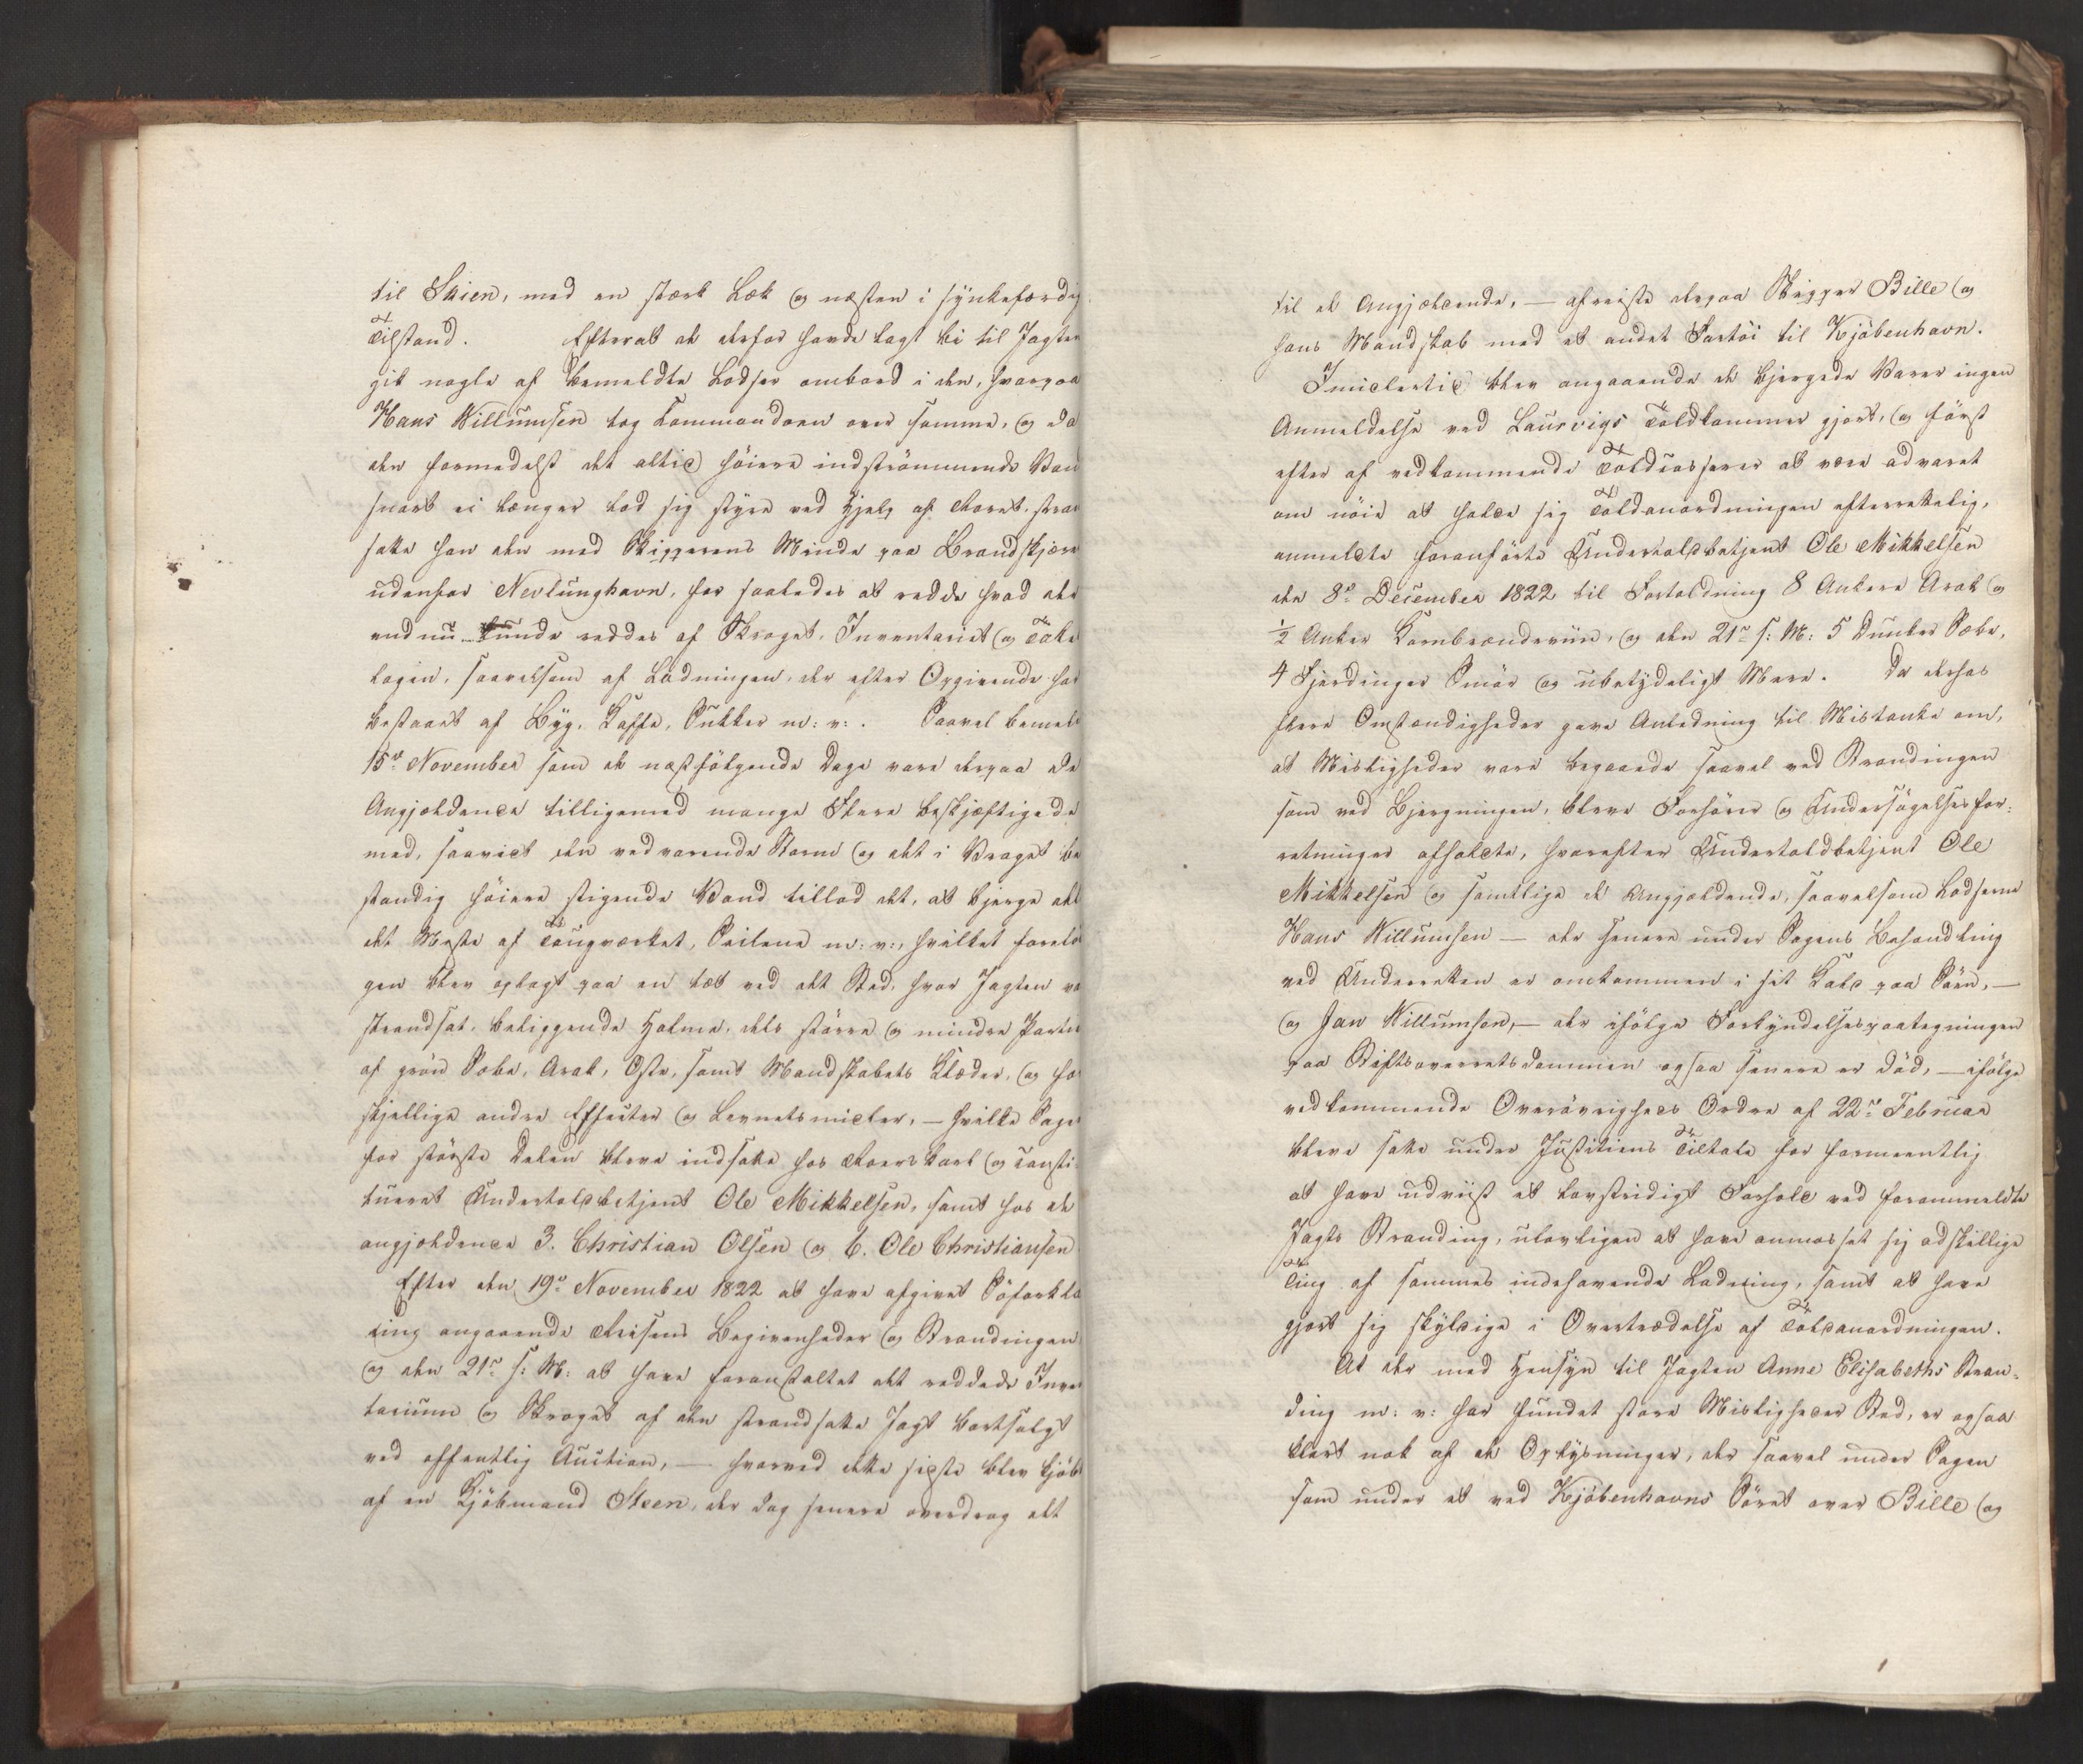 til Skien, med en stærk Læk og næsten i synkefærdig
Tilstand. Efterat de derfor havde lagt bi til Jagten
gik nogle af bemeldte Lodser ombord i den, hvorpaa
Hans Willumsen tog Kommandoen over samme, og da
den formedelst det altid høiere indströmmende Van
snart ei længer lod sig styre ved Hjelp af Roret, stran
satte han den med Skipperens Minde paa Brandskjære
udenfor Nevlunghavn, for saaledes at redde hvad der
endnu kunde reddes af Skroget, Inventariet og Take
lagen, saavelsom af Ladningen, der efter Opgivende har
bestaaet af Byg, Kaffe, Sukker m: v:. Saavel bemeld
15de November som de næstfölgende Dage vare derpaa de
Angjeldende tilligemed mange Flere beskjæftigede
med, saavidt den vedvarende Storm og det i Vraget be
standig höiere stigende Vand tillod det, at bjerge del
det Meste af Tougværket, Seilene m: v:, hvilket forelö
gen blev oplagt paa en tæt ved det Sted, hvor Jagten va
strandsat, beliggende Holme, dels större og mindre Partie
af grön Sæbe, Arak, Oste, samt Mandskabets Klæder, og for
skjellige andre Effecter og Levnetsmidler, — hvilke Sage
for störste Delen bleve indsatte hos Roerskarl og consti
tueret Undertoldbetjent Ole Mikkelsen, samt hos de
angjeldende 3. Christian Olsen og 6. Ole Christiansen
Efter den 19de November 1822 at have afgivet Söforkla
ring angaaende Reisens Begivenheder og Strandingen
og den 21de s: M: at have foranstaltet det reddede Inven
tarium og Skroget af den strandsatte Jagt bortsolgt
ved offentlig Auction, — hvorved dette sidste blev kjöbt
af en Kjöbmand Steen, der dog senere overdrog det
til de Angjeldende, — afreiste derpaa Skipper Bille og
hans Mandskab med et andet Fartöi til Kjöbenhavn.
Imidlertid blev angaaende de bjergede Varer ingen
Anmeldelse ved Laurvigs Toldkammer gjort, og först
efter af vedkommende Toldcasserer at være advaret
om nöie at holde sig Toldanordningen efterrettelig,
anmeldte foranförte Undertoldbetjent Ole Mikkelsen
den 8de December 1822 til Fortoldning 8 Ankere Arak og
½ Anker Kornbrændeviin, og den 21de s: M: 5 Dunker Sæbe,
4 Fjerdinger Smör og ubetydeligt Mere. Da derhos
flere Omstændigheder gave Anledning til Mistanke om,
at Misligheder vare begaaede saavel ved Strandingen
som ved Bjergningen, bleve Forhörer og Undersögelsesfor-
retninger afholdte, hvorefter Undertoldbetjent Ole
Mikkelsen og samtlige de Angjeldende, saavelsom Lodserne
Hans Willumsen — der senere under Sagens Behandling
ved Underretten er omkommen i sit Kald paa Söen, —
og Jan Willumsen, — der ifölge Forkyndelsespaategningen
paa Stiftsoverretsdommen ogsaa senere er död, — ifölge
vedkommende Överövrigheds Ordre af 22de Februar
bleve satte under Justitiens Tiltale for formeentlig
at have udviist et lovstridigt Forhold ved forommeldte
Jagts Stranding, ulovligen at have anmasset sig adskillige
Ting af sammes indehavende Ladning, samt at have
gjort sig skyldige i Overtrædelse af Toldanordningen.
At der med Hensyn til Jagten Anne Elisabeths Stran-
ding m: v: har fundet store Misligheder Sted, er ogsaa
klart nok af de Oplysninger, der saavel under Sagen
som under et ved Kjöbenhavns Söret over Bille og